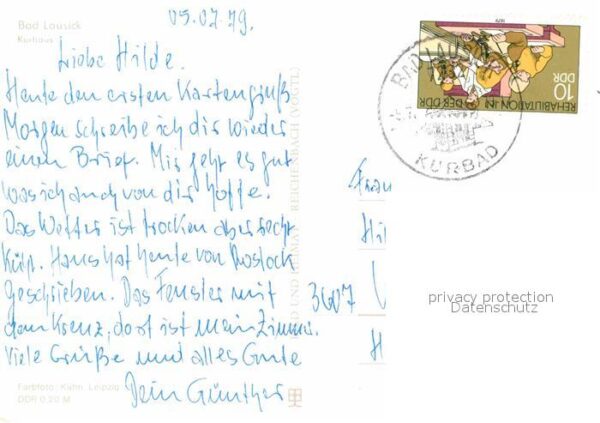 Bad Lausick
Kurhaus
05.07.79.
Liebe Hilde.
Heute den ersten Kartengruß
Morgen schreibe ich dir wieder
einen Brief. Mir geht es gut
was ich auch von dir hoffe.
Das Wetter ist trocken aber recht
kühl. Hans hat heute von Rostock
geschrieben. Das Fenster mit
dem Kreuz, dort ist mein Zimmer.
Viele Grüße und alles Gute
Dein Günther
Farbfoto: Kühn, Leipzig
DDR 0,20 M
REICHENBACH (VOGTL)
BAD LAU
KURBAD
10
DDR
REHABILITATION IN
DER DDR
Frau
Hil
3607
H
privacy protection
Datenschutz